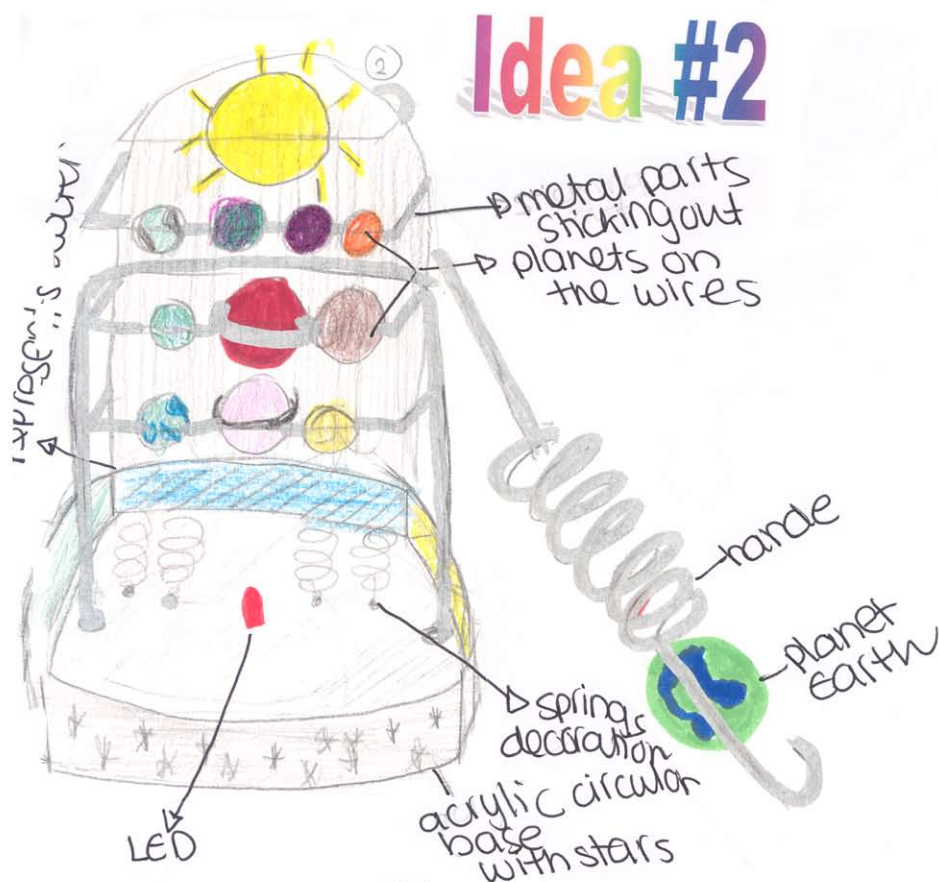 Idea #2
2
metal parts
sticking out
planets on
the wires
hande
planet
earth
springs
decoration
acrylic circular
base
with stars
LED